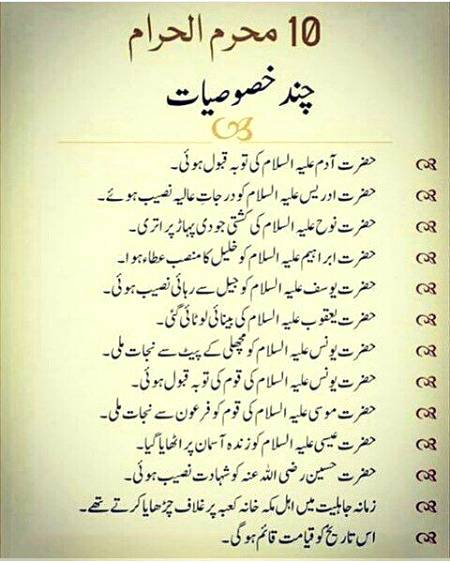 10 محرم الحرام
چند خصوصیات
حضرت آدم علیہ السلام کی توبہ قبول ہوئی۔
حضرت ادریس علیہ السلام کو درجاتِ عالیہ نصیب ہوئے۔
حضرت نوح علیہ السلام کی کشتی جودی پہاڑ پر اتری۔
حضرت ابراہیم علیہ السلام کو خلیل کا منصب عطاء ہوا۔
حضرت یوسف علیہ السلام کو جیل سے رہائی نصیب ہوئی۔
حضرت یعقوب علیہ السلام کی بینائی لوٹائی گئی۔
حضرت یونس علیہ السلام کو مچھلی کے پیٹ سے نجات ملی۔
حضرت یونس علیہ السلام کی قوم کی توبہ قبول ہوئی۔
حضرت موسی علیہ السلام کی قوم کو فرعون سے نجات ملی۔
حضرت عیسی علیہ السلام کو زندہ آسمان پر اٹھایا گیا۔
حضرت حسین رضی اللہ عنہ کو شہادت نصیب ہوئی۔
زمانہ جاہلیت میں اہل مکہ خانہ کعبہ پر غلاف چڑھایا کرتے تھے۔
اس تاریخ کو قیامت قائم ہوگی۔